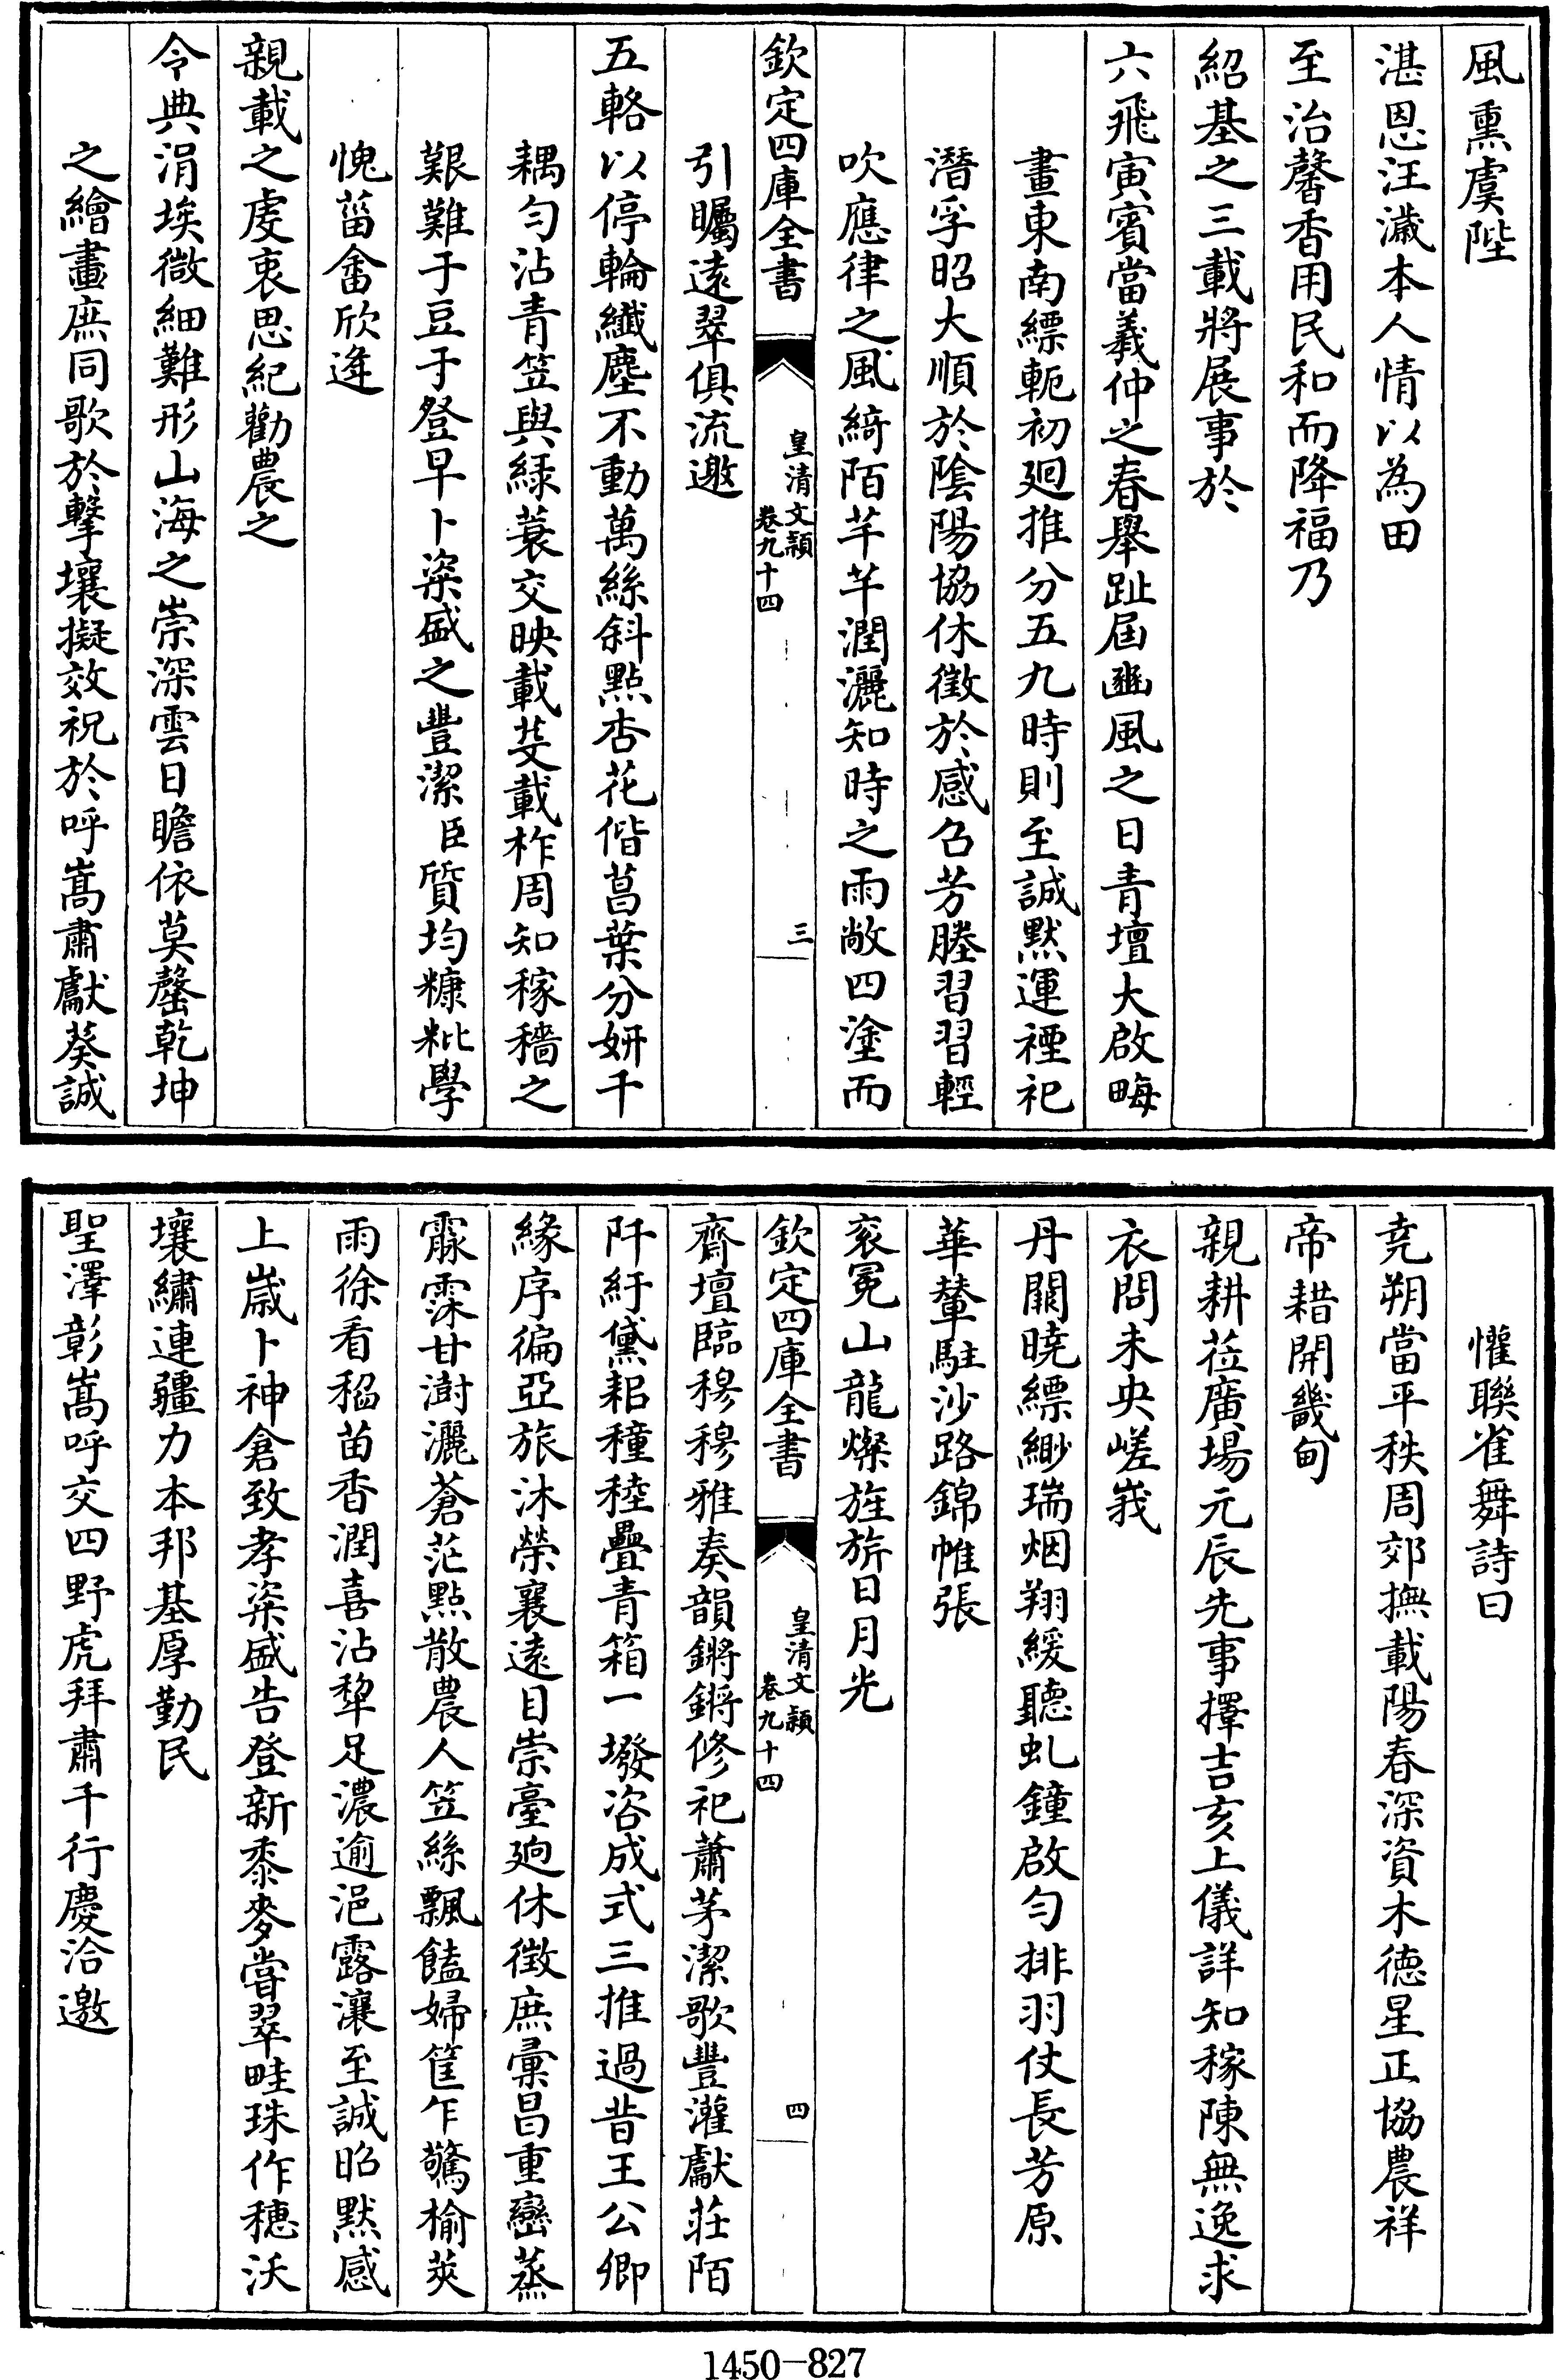 風熏虞陛
湛恩汪濊本人情以為田
至治馨香用民和而降福乃
紹基之三載將展事於
六飛寅賓當羲仲之春舉趾屆豳風之日青壇大啟畮
畫東南縹軛初廻推分五九時則至誠默運禋祀
潛孚昭大順於陰陽協休徵於感召芳塍習習輕
吹應律之風綺陌芊芊潤灑知時之雨敞四塗而
欽定四庫全書
皇清文穎
卷九十四
三
引矚遠翠俱流邀
五輅以停輪纖塵不動萬絲斜點杏花偕菖葉分妍千
耦勻沾青笠與緑蓑交映載芟載柞周知稼穡之
艱難于豆于登早卜粢盛之豐潔臣質均糠粃學
愧菑畬欣逢
親載之虔衷思紀勸農之
令典涓埃微細難形山海之崇深雲日瞻依莫罄乾坤
之繪畫庶同歌於擊壤擬效祝於呼嵩肅獻葵誠
懽聯雀舞詩曰
堯朔當平秩周郊撫載陽春深資木德星正協農祥
帝耤開畿甸
親耕莅廣場元辰先事擇吉亥上儀詳知稼陳無逸求
衣問未央嵯峩
丹闕曉縹緲瑞烟翔緩聽虬鐘啟勻排羽仗長芳原
華輦駐沙路錦帷張
衮冕山龍燦旌旂日月光
欽定四庫全書
皇清文穎
卷九十四
四
齋壇臨穆穆雅奏韻鏘鏘修祀蕭茅潔歌豐灌獻莊陌
阡紆黛耜穜稑疊青箱一墢咨成式三推過昔王公卿
緣序徧亞旅沐榮襄遠目崇臺廻休徵庶彙昌重巒蒸
霢霂甘澍灑蒼茫點散農人笠絲飄饁婦筐乍驚榆莢
雨徐看稻苗香潤喜沾犂足濃逾浥露瀼至誠昭默感
上嵗卜神倉致孝粢盛告登新黍麥嘗翠畦珠作穗沃
壤繡連疆力本邦基厚勤民
聖澤彰嵩呼交四野虎拜肅千行慶洽邀
1450-827